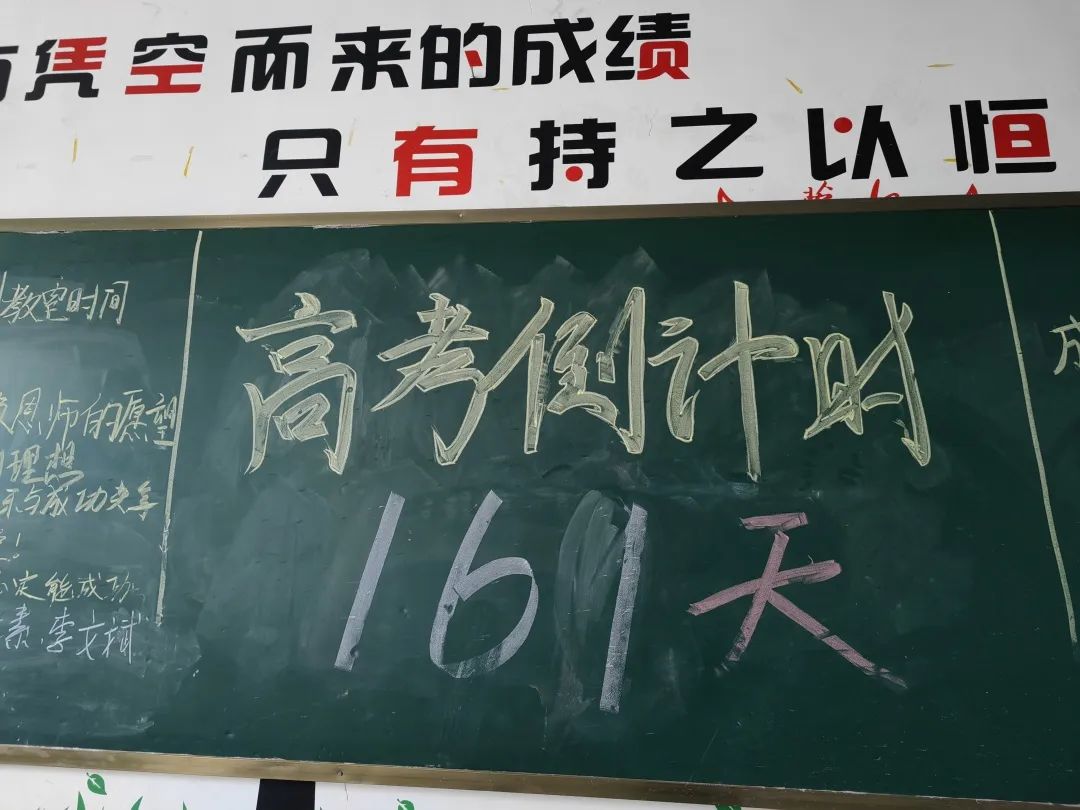 凭空而来的成绩
只有持之以恒
教室时间
恩师的愿望
理想
与成功
定能成功
李文斌
高考倒计时
161天